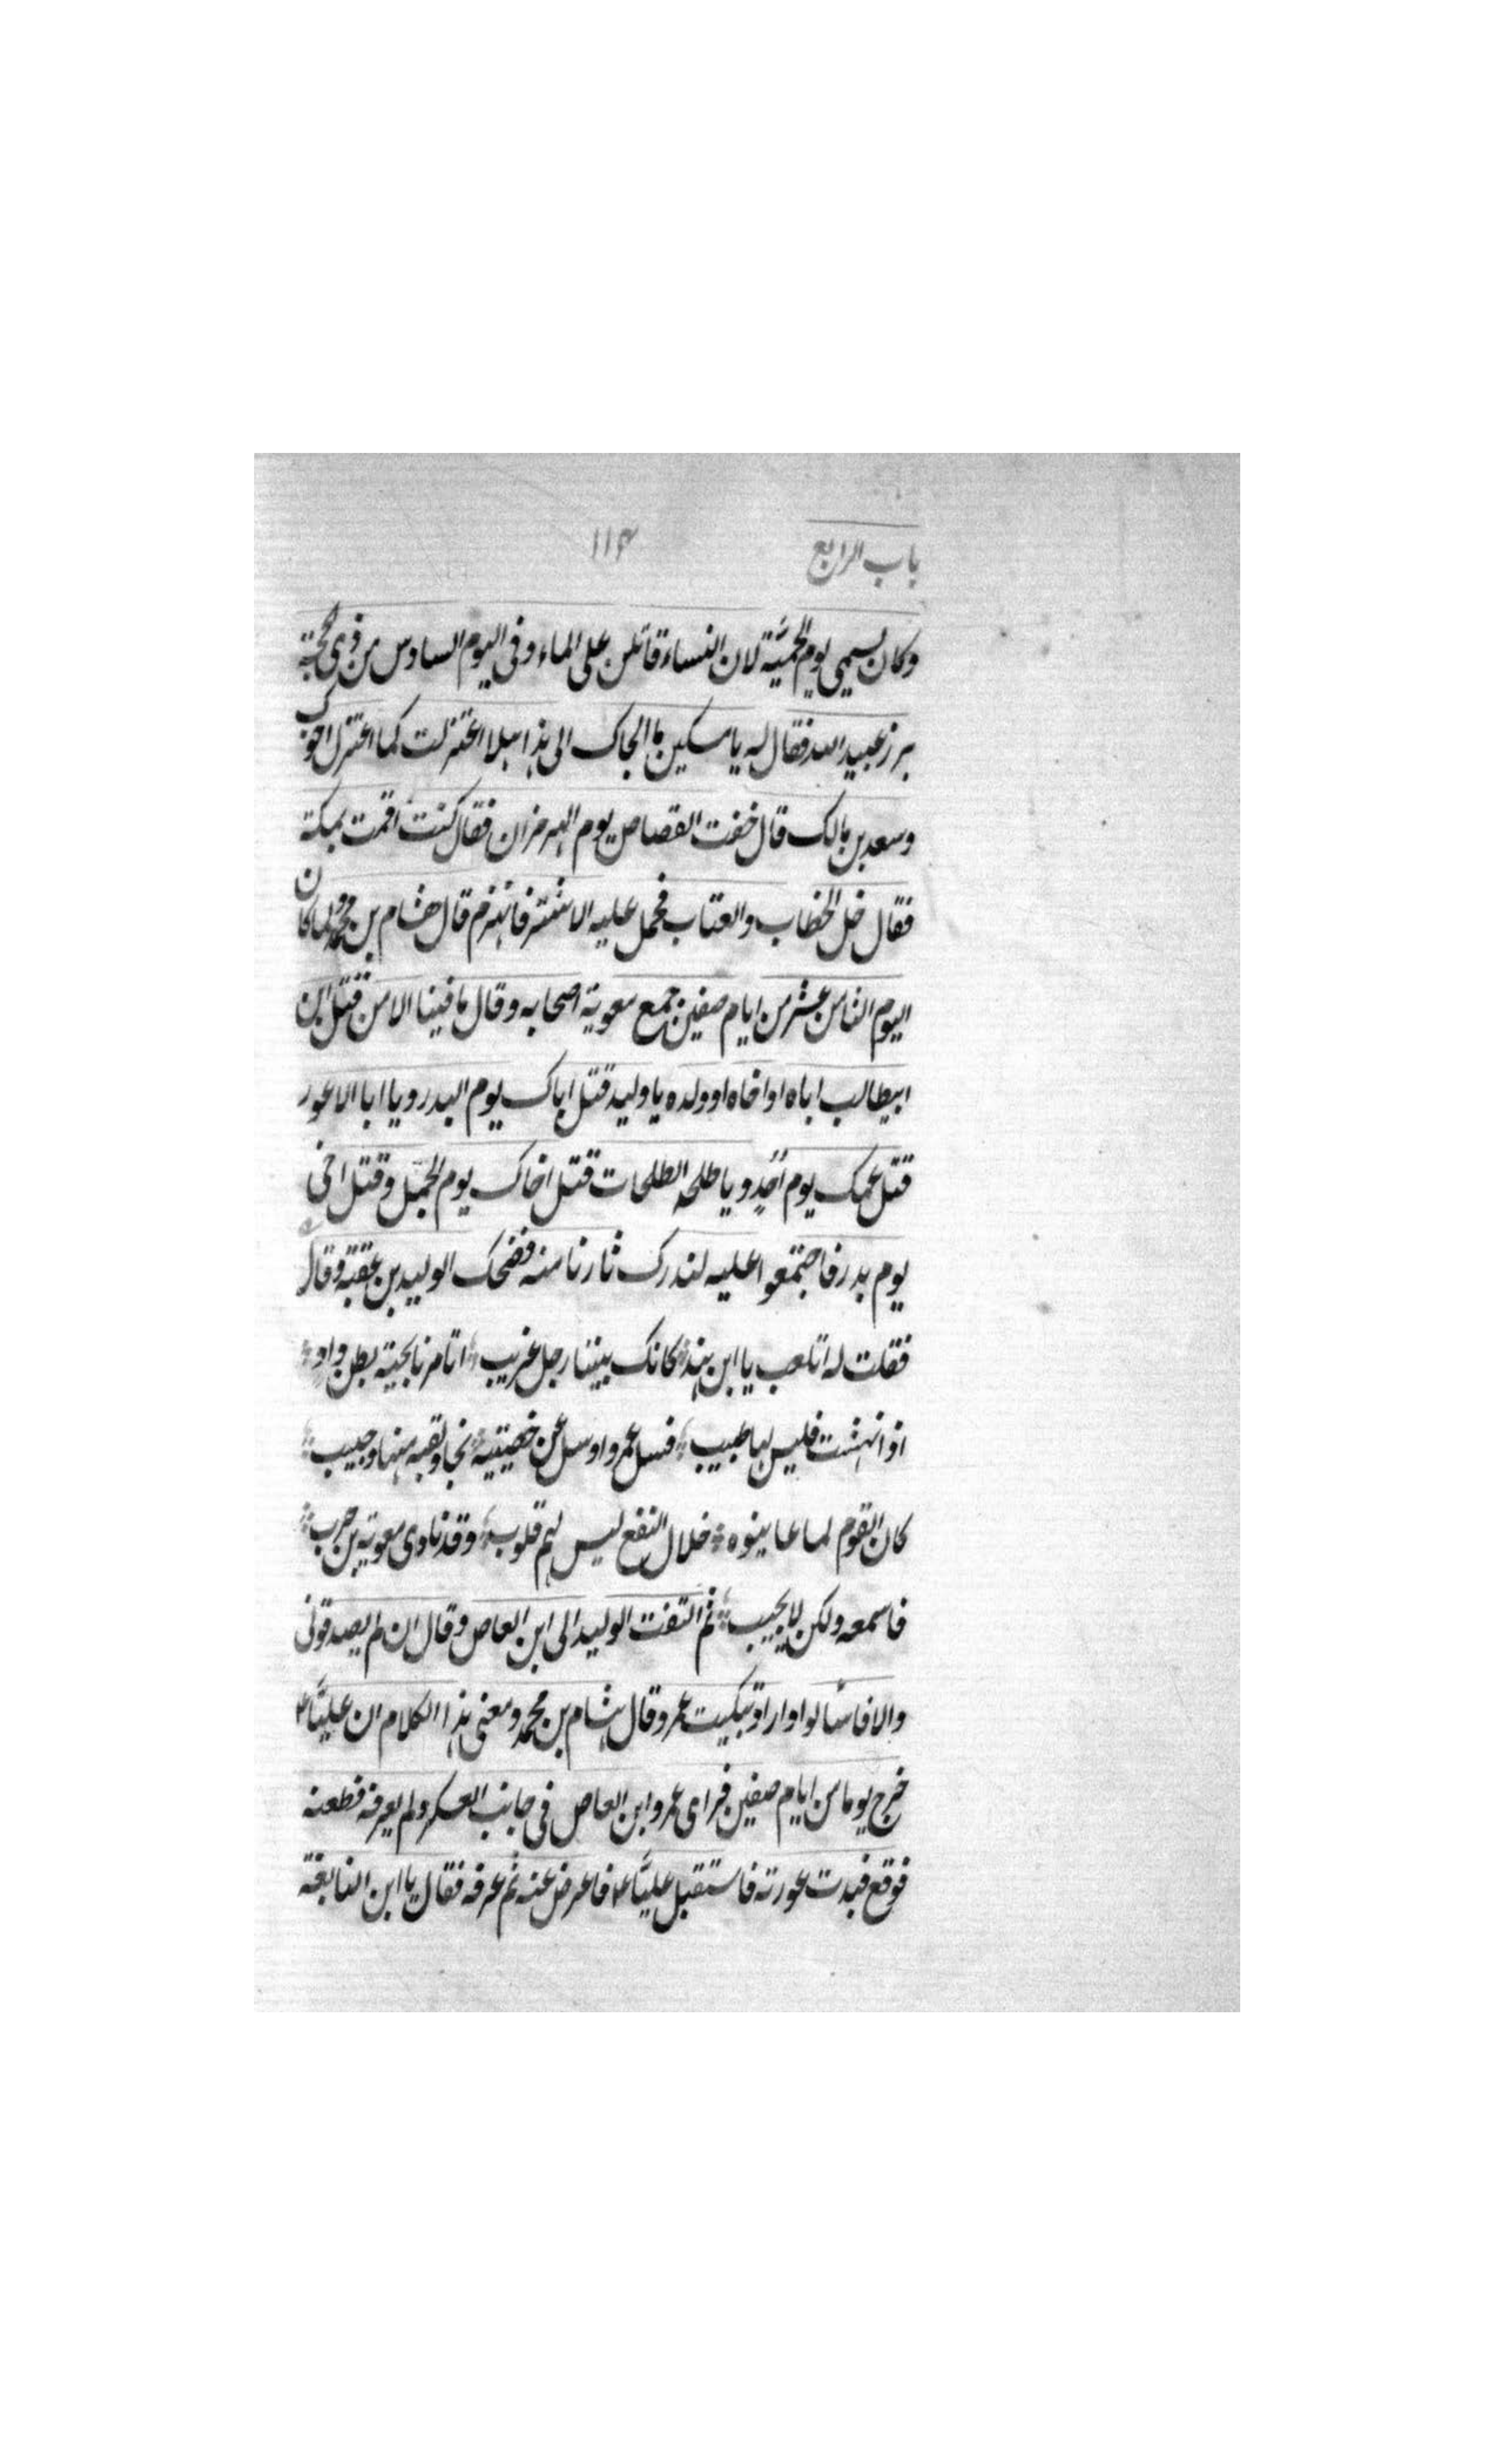 باب الرابع
۱۱۴
وكان يسمى يوم الحميّة لان النساء قاتلن على الماء وفى اليوم السادس من ذى الحجة
برز عبيد الله فقال له يا مسكين ما الجاك الى هذا هلا اعتزلت كما اعتزل اخوك
وسعد بن مالك قال خفت القصاص يوم الهرمزان فقال كنت اقمت بمكة
فقال خل الخطاب والعتاب فحمل عليه الاشتر فانهزم قال هشام بن محمد ولما كان
اليوم الثامن عشر من ايام صفين جمع معوية اصحابه وقال ما فينا الا من قتل ابن
ابيطالب اباه او اخاه او ولده يا وليد قتل اباك يوم البدر ويا ابا الاعور
قتل عمك يوم اُحُدٍ ويا طلحه الطلحات قتل اخاك يوم الجمل وقتل اخى
يوم بدر فاجتمعوا عليه لندرك ثارنا منه فضحك الوليد بن عقبة وقال
فقلت له اتلعب يا ابن هند كانك بيننا رجل غريب اتامرنا بحية بطن واد
اذا نهشت فليس لها طبيب فسل عمروا وسل عن خصيتيه نجا ولقبه منها وجيب
كان القوم لما عاينوه خلال النقع ليس لهم قلوب وقد نادى معوية بن حرب
فاسمعه ولكن لا يجيب ثم التفت الوليد الى ابن العاص وقال ان لم يصدقونى
والا فاسّالوا واراد تبكيت عمرو قال هشام بن محمد ومعنى هذا الكلام ان عليّا ع
خرج يوما من ايام صفين فراى عمرو ابن العاص فى جانب العسكر ولم يعرفه فطعنه
فوقع فبدت عورته فاستقبل عليّا ع فاعرض عنه ثم عرفه فقال يا ابن النابغة